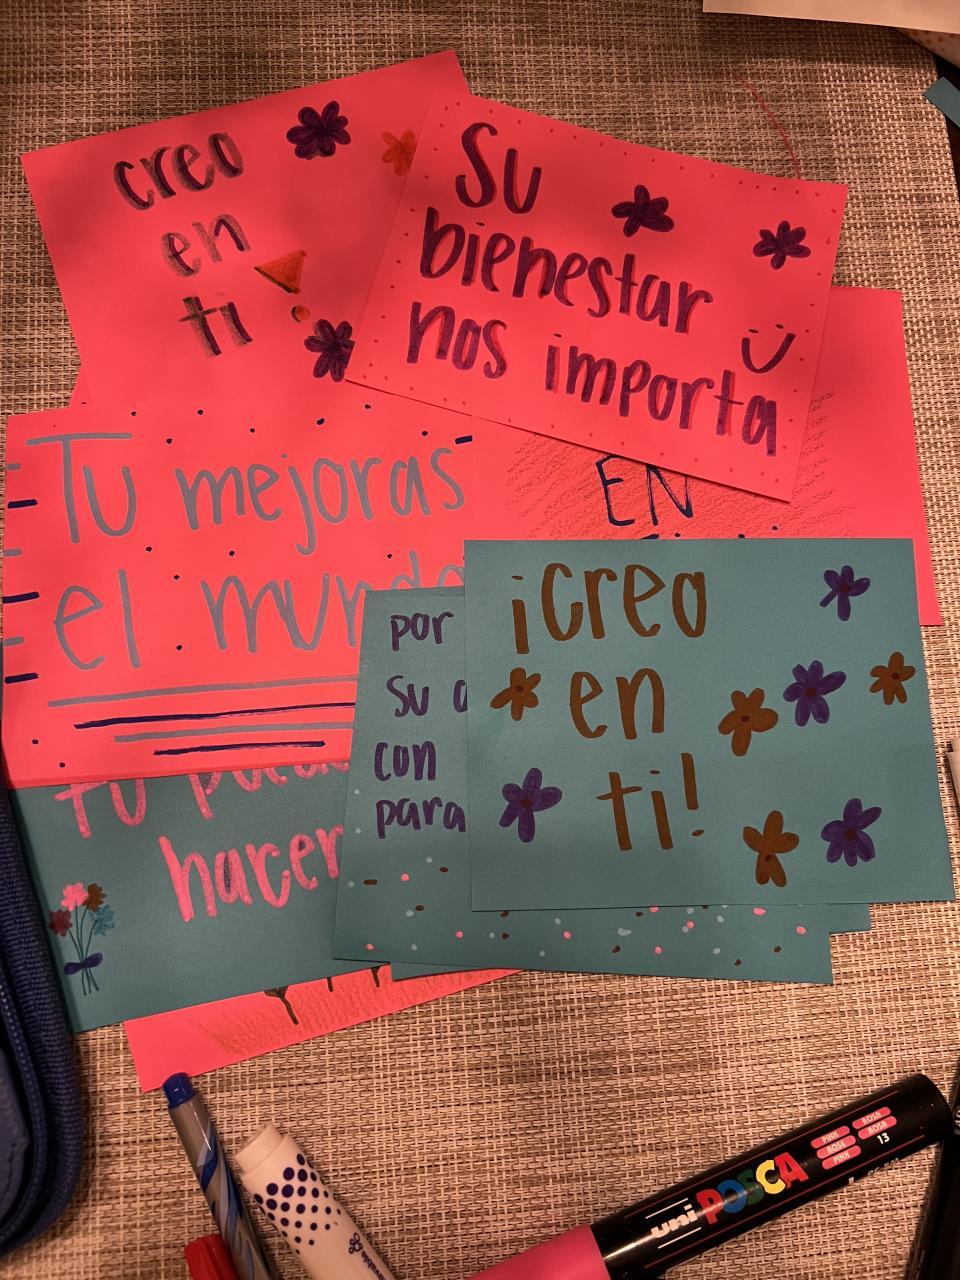 creo
en
ti !
Su
bienestar
nos importa
EN
Tu mejoras
el mundo
por
su
con
para
¡Creo
en
ti!
Tu
hacer
uni POSCA
PINK ROSA
ROSE ROSA
PINK
13